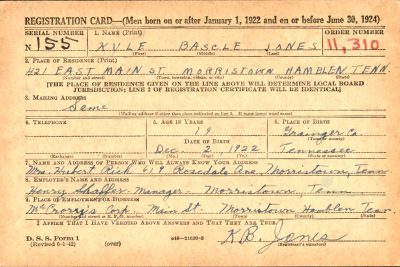 REGISTRATION CARD—(Men born on or after January 1, 1922 and on or before June 30, 1924)
SERIAL NUMBER 1. NAME (Print) ORDER NUMBER
N 155 XVLE BASCLE JONES 11,310
(First) (Middle) (Last)
2. PLACE OF RESIDENCE (Print)
421 EAST MAIN ST. MORRISTOWN HAMBLEN TENN.
(Number and street) (Town, township, village, or city) (County) (State)
[THE PLACE OF RESIDENCE GIVEN ON THE LINE ABOVE WILL DETERMINE LOCAL BOARD
JURISDICTION; LINE 2 OF REGISTRATION CERTIFICATE WILL BE IDENTICAL]
3. MAILING ADDRESS
Same
[Mailing address if other than place indicated on line 2. If same insert word same]
4. TELEPHONE 5. AGE IN YEARS 6. PLACE OF BIRTH
19 Grainger Co.
DATE OF BIRTH (Town or county)
Dec 2, 1922 Tennessee
(Exchange) (Number) (Mo.) (Day) (Yr.) (State or country)
7. NAME AND ADDRESS OF PERSON WHO WILL ALWAYS KNOW YOUR ADDRESS
Mrs. Hubert Rick 419 Rosedale Ave, Morristown, Tenn
8. EMPLOYER'S NAME AND ADDRESS
Henry Shaffer - Manager - Morristown, Tenn
9. PLACE OF EMPLOYMENT OR BUSINESS
McCrory's Corp. Main St. Morristown Hamblen Tenn.
(Number and street or R. F. D. number) (Town) (County) (State)
I AFFIRM THAT I HAVE VERIFIED ABOVE ANSWERS AND THAT THEY ARE TRUE.
D. S. S. Form 1
(Revised 6-1-42) (over) K.B. Jones
(Registrant's signature)